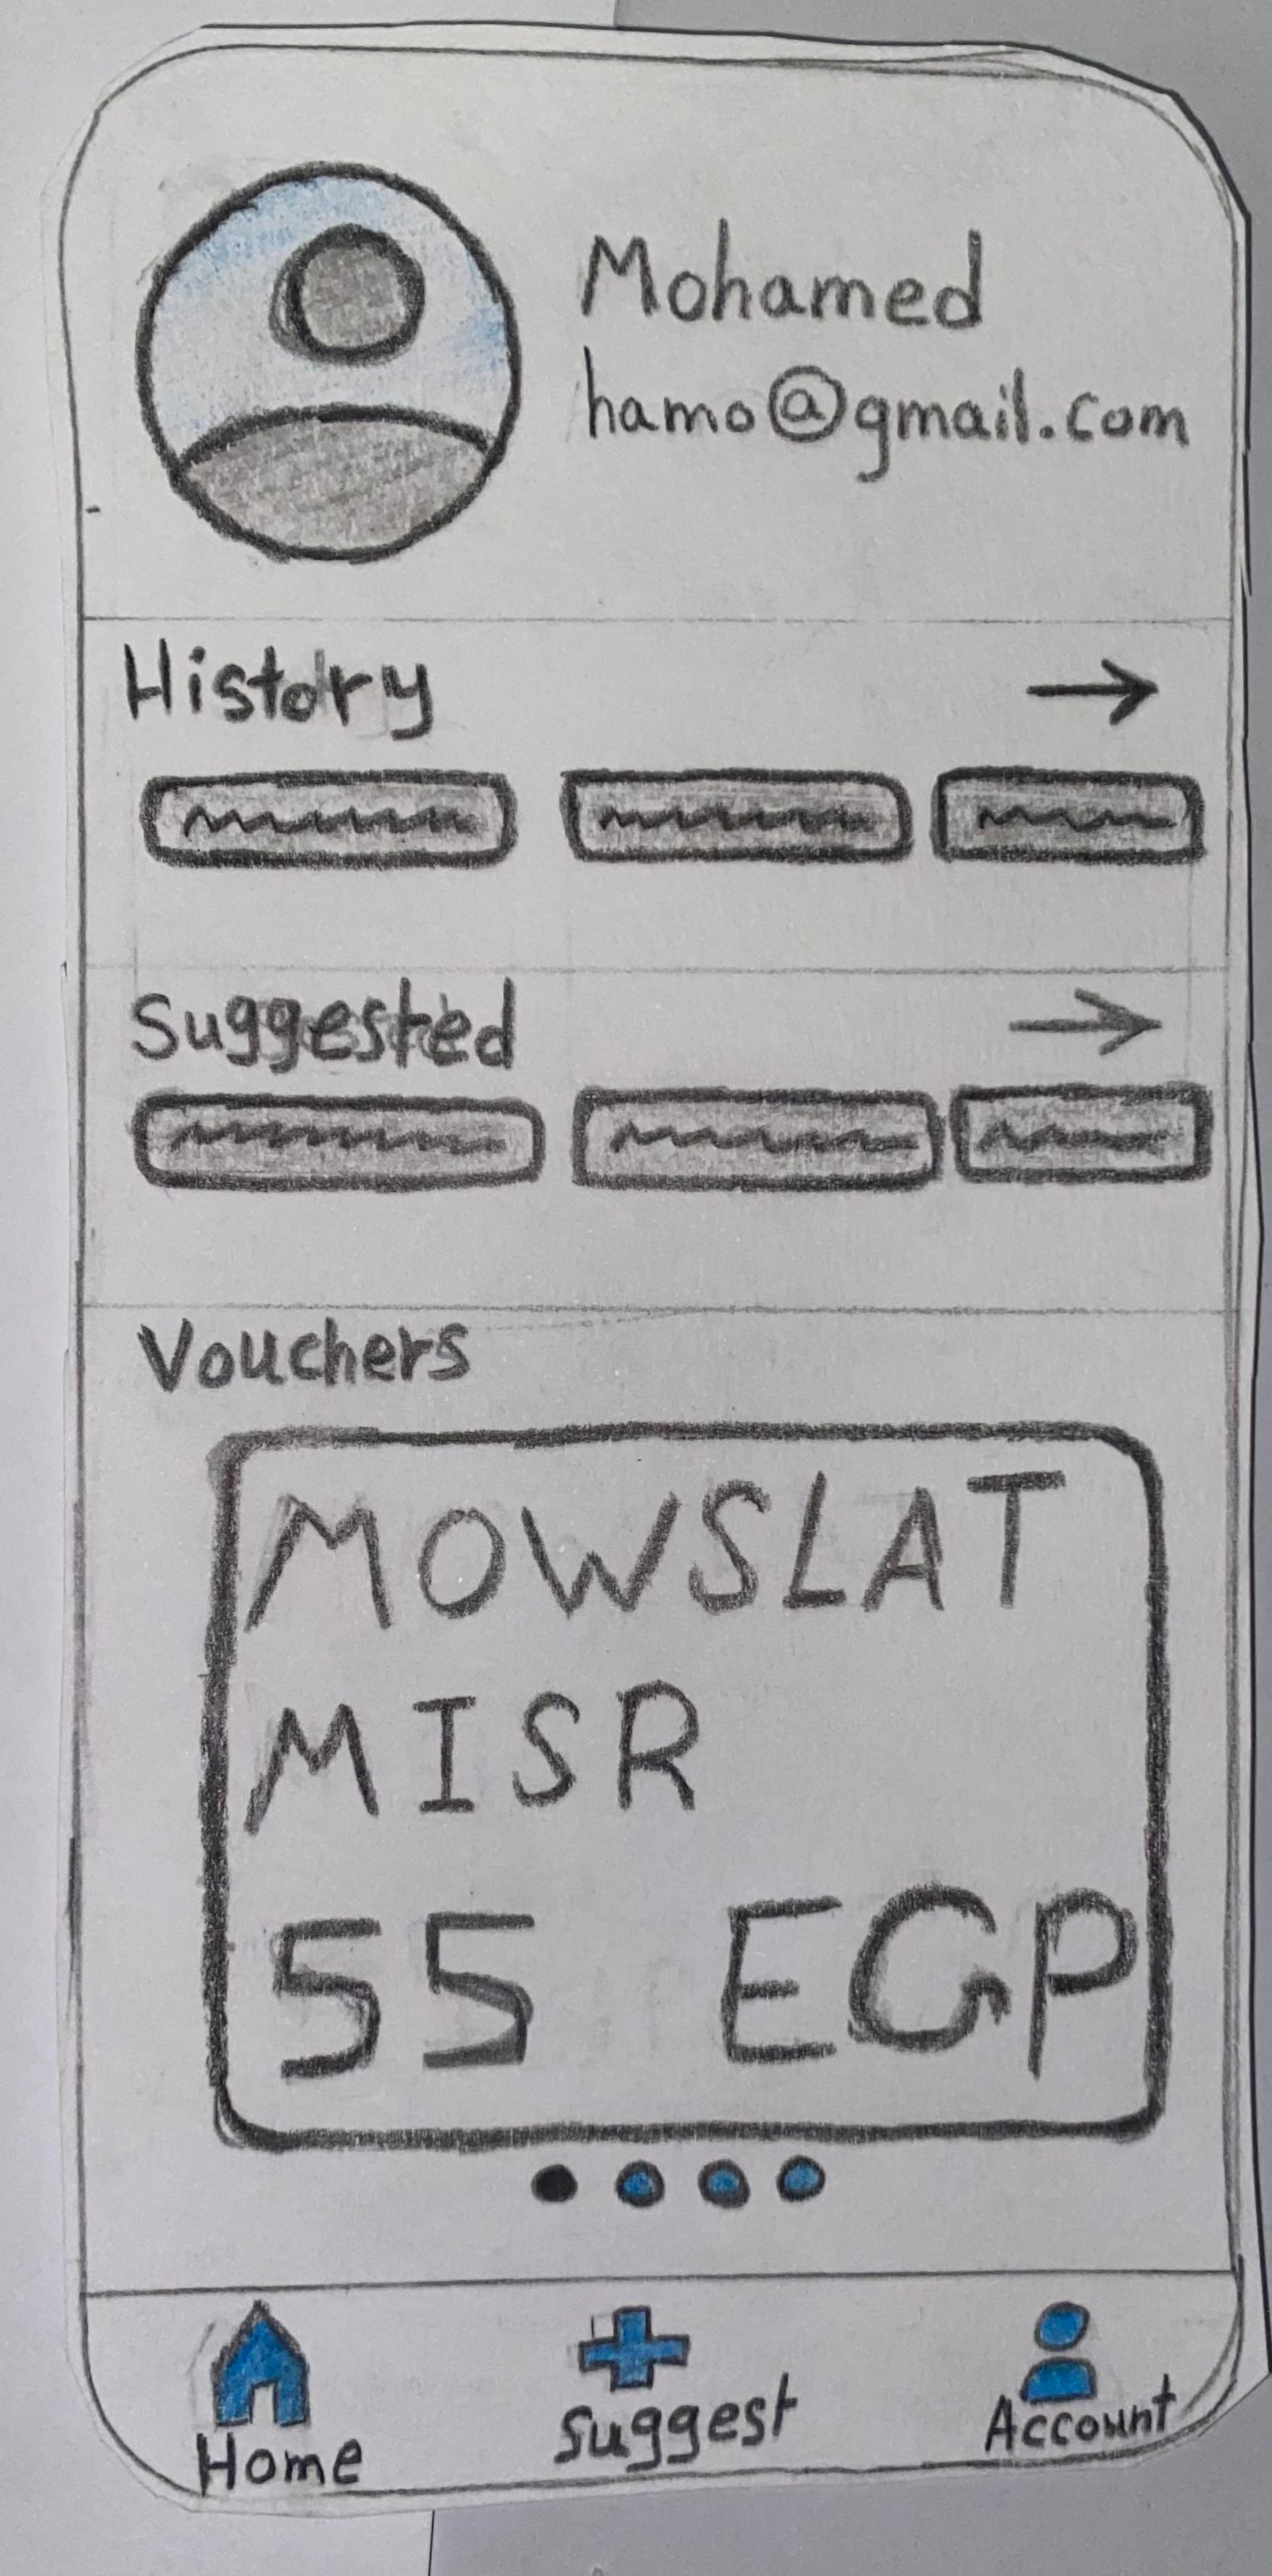 Mohamed
hamo@gmail.com
History
Suggested
Vouchers
MOWSLAT
MISR
55 EGP
Home
Suggest
Account